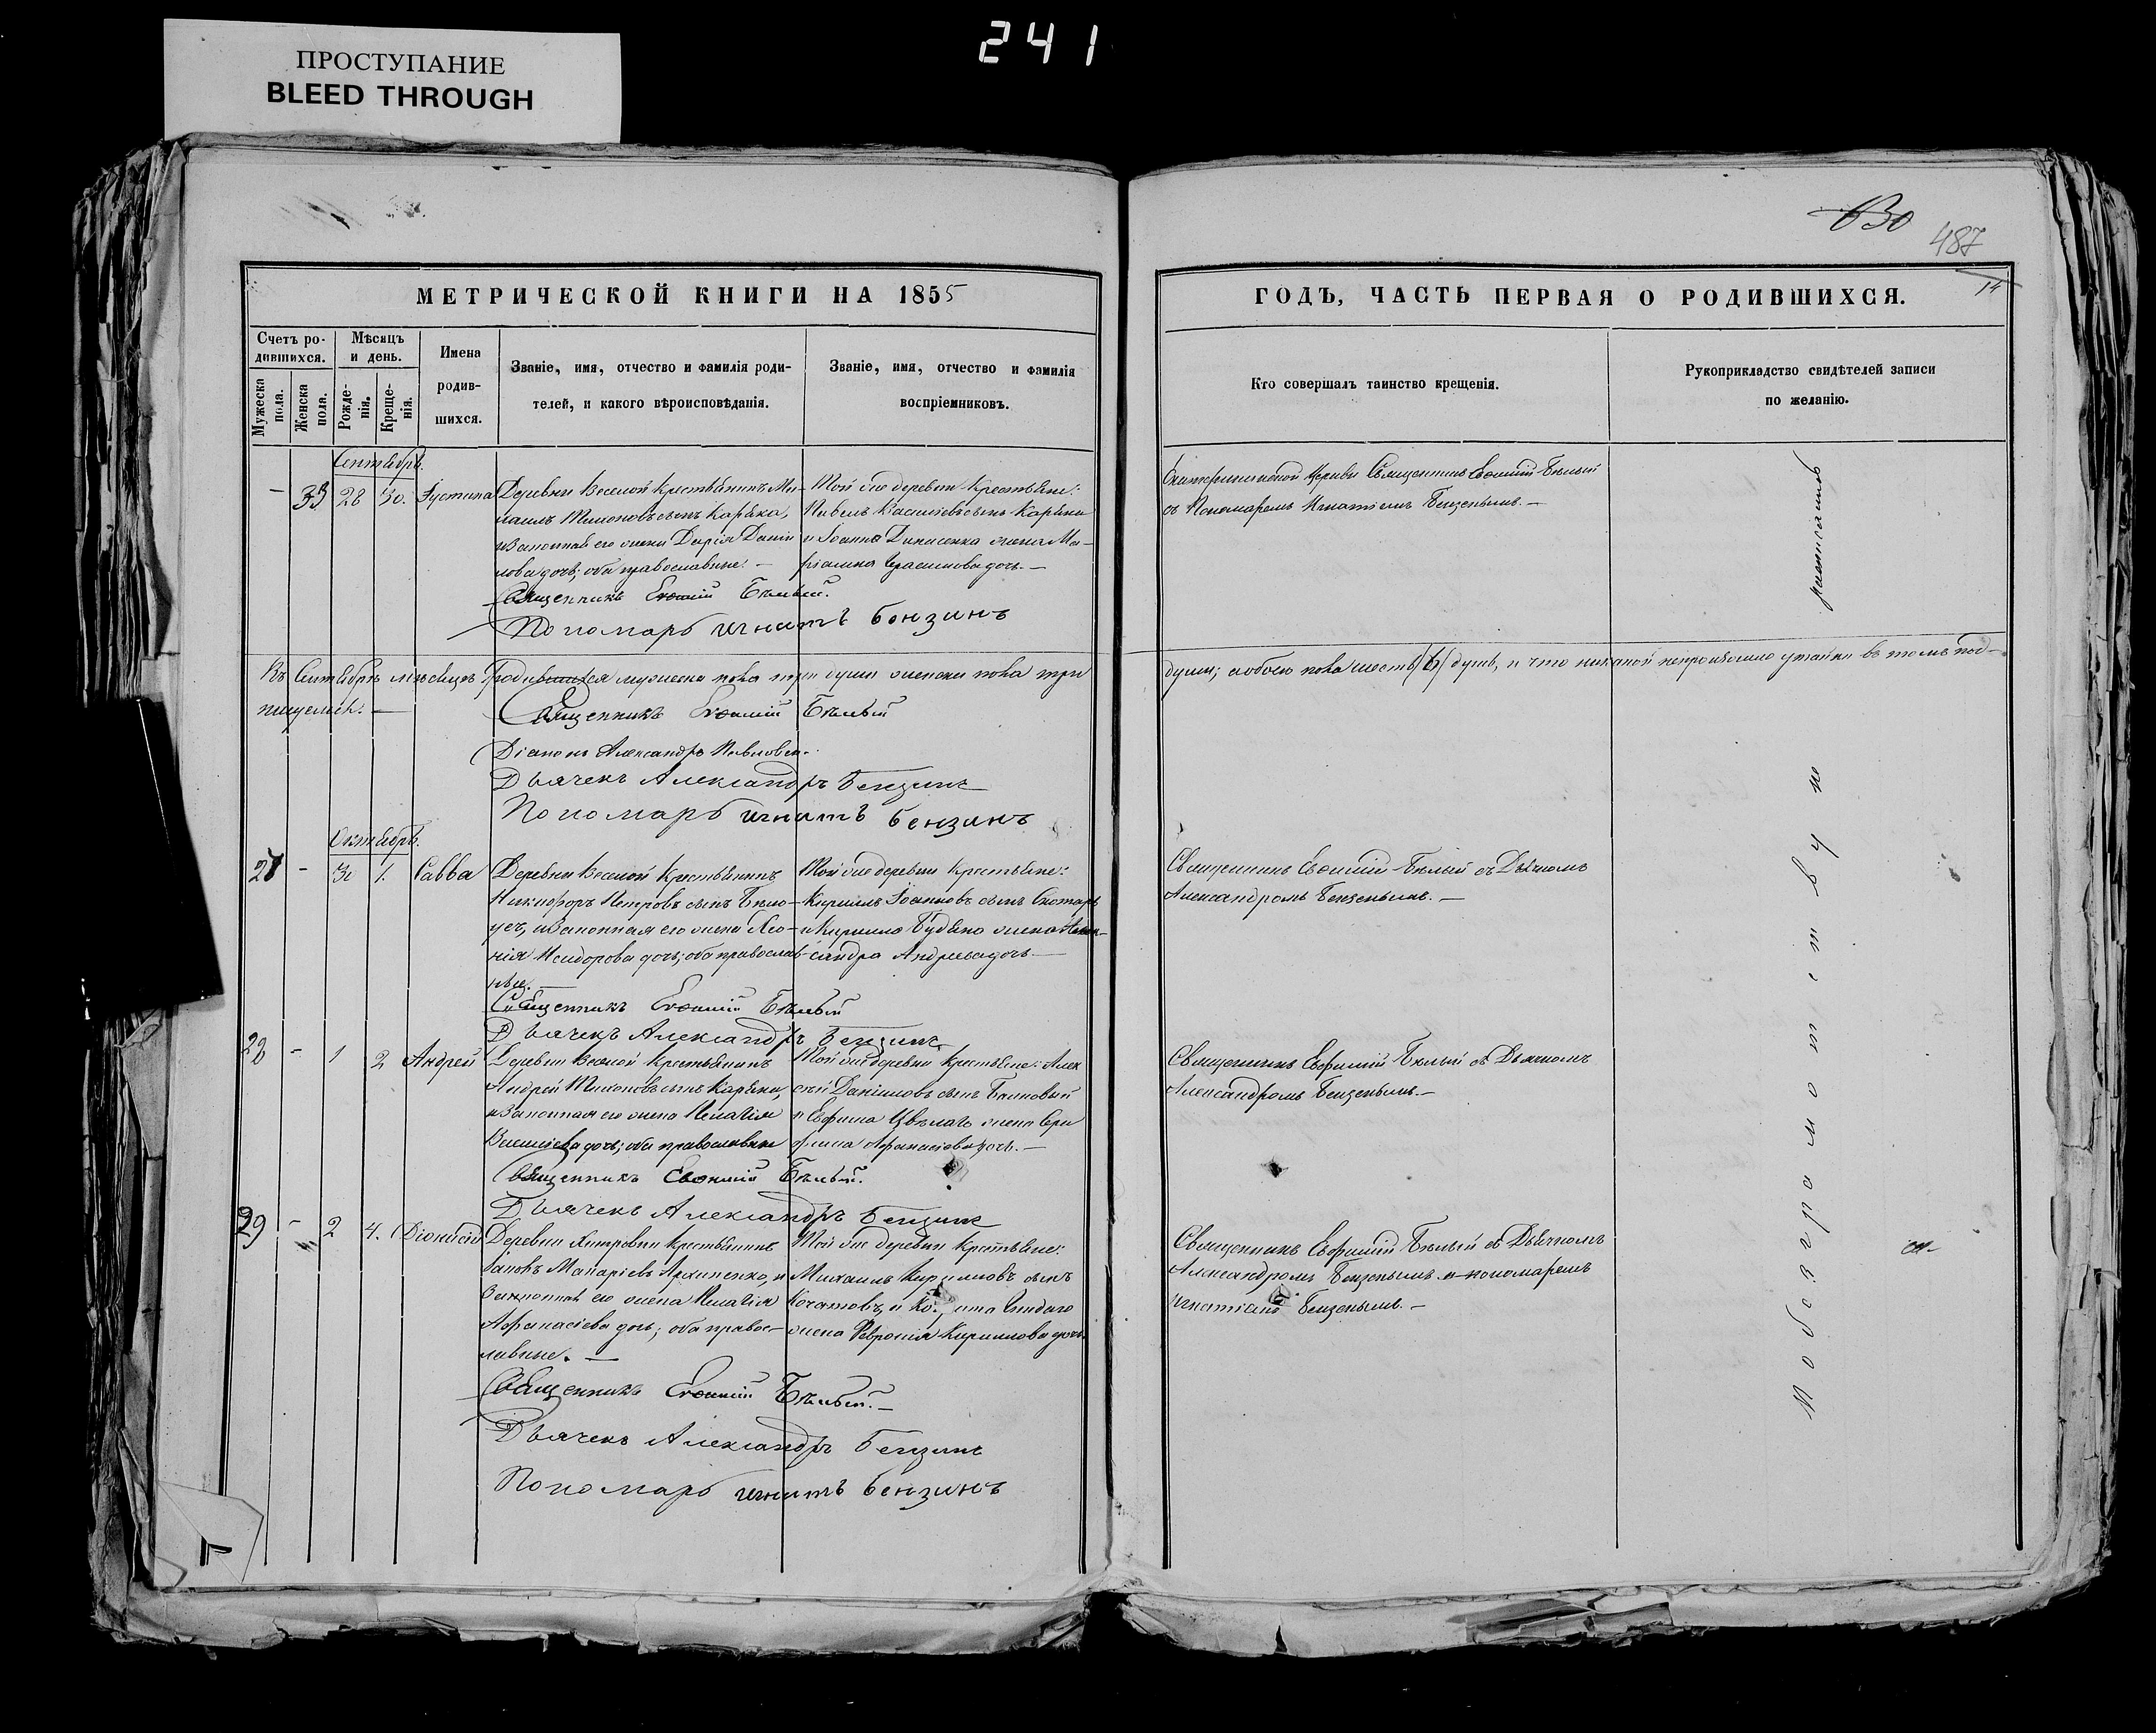 241
ПРОСТУПАНИЕ
BLEED THROUGH
487
МЕТРИЧЕСКОЙ КНИГИ НА 1855
ГОДЪ, ЧАСТЬ ПЕРВАЯ О РОДИВШИХСЯ.
Счетъ родившихся.
Мужеска пола.
Женска пола.
Мѣсяцъ и день.
Рожденія.
Крещенія.
Имена родившихся.
Званіе, имя, отчество и фамилія родителей, и какого вѣроисповѣданія.
Званіе, имя, отчество и фамилія воспріемниковъ.
Кто совершалъ таинство крещенія.
Рукоприкладство свидѣтелей записи по желанію.
Сентябрь.
33 28 30. Іустина
Деревни Веселой крестьянинъ Ми-
хаилъ Тимоновъ сынъ Каряка,
и законная его жена Дарія Дании
лова дочь; оба православные. —
Той же деревни крестьяне:
Павелъ Василіевъ сынъ Каряка
и Іоанна Денисенка жена Ма-
ріамна Герасимова дочь. —
Священникъ Евѳимій Бѣлый.
Пономарь Игнатъ Бензинъ
церкви Священникъ Евѳимій Бѣлый
съ Пономаремъ Игнатіемъ Бензенымъ. —
Въ Сентябрѣ мѣсяцѣ родившихся мужеска пола три души женска пола три
души; обоего пола шесть /6/ душъ, и что никакой непроизошло утайки въ томъ под-
пишуемся. —
Священникъ Евѳимій Бѣлый
Діаконъ Александръ
Дьячекъ Александръ Бензинъ
Пономарь Игнатъ Бензинъ
Октябрь.
27 - 30 1. Савва
Деревни Веселой крестьянинъ
Никифоръ Петровъ сынъ Бѣло-
усъ, и законная его жена Ксе-
нія Исидорова дочь; оба православ-
ные. —
Той же деревни крестьяне:
Кирилъ Іоанновъ сынъ Скотарь
и Кирилла Будяка жена Алек-
сандра Андреева дочь. —
Священникъ Евѳимій Бѣлый
Дьячекъ Александръ Бензинъ
Священникъ Евѳимій Бѣлый съ Дьячкомъ
Александромъ Бензенымъ. —
28 - 1 2 Андрей
Деревни Веселой крестьянинъ
Андрей Тимоновъ сынъ Каряка,
и законная его жена Пелагія
Василіева дочь; оба православные
Той же деревни крестьяне: Алек
сѣй Даніиловъ сынъ Балковый
и Ефима жена
Афанасіева дочь. —
Священникъ Евѳимій Бѣлый.
Дьячекъ Александръ Бензинъ
Священникъ Евфимій Бѣлый съ Дьячкомъ
Александромъ Бензенымъ. —
29 - 2 4. Діонисій
Деревни крестьянинъ
Макаріевъ Архипенко, и
законная его жена Пелагія
Афанасіева дочь; оба правос-
лавные. —
Той же деревни крестьяне:
Михаилъ Кирилловъ сынъ
жена Февронія Кириллова дочь.
Священникъ Евѳимій Бѣлый. —
Дьячекъ Александръ Бензинъ
Пономарь Игнатъ Бензинъ
Священникъ Евфимій Бѣлый съ Дьячкомъ
Александромъ Бензенымъ и пономаремъ
Игнатіемъ Бензенымъ. —
По безграмотству не